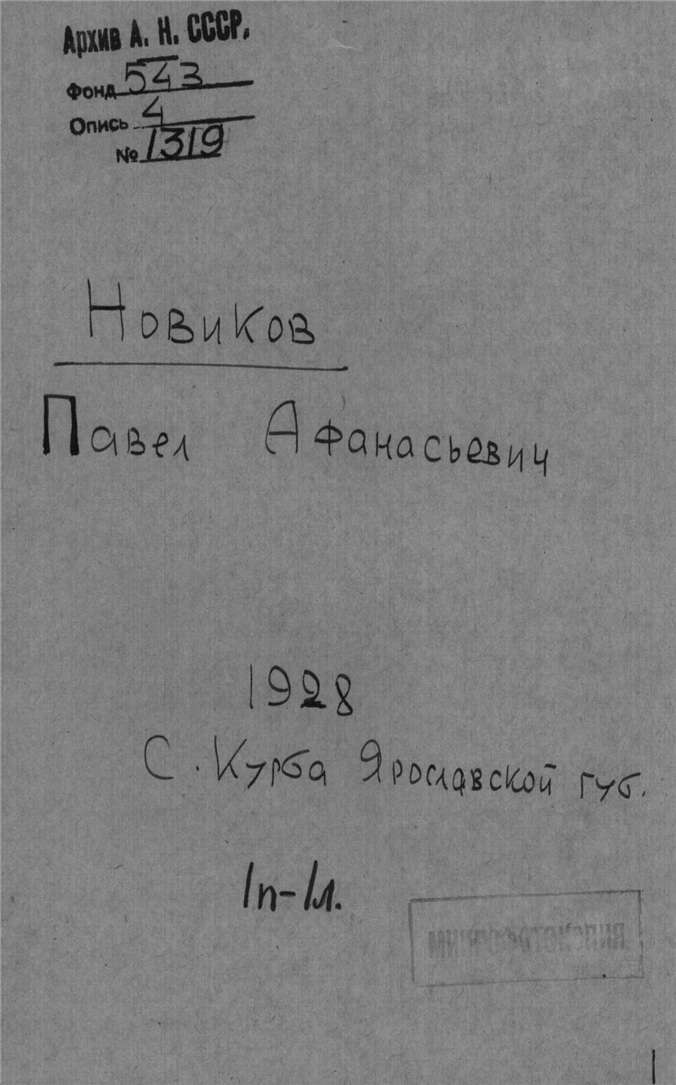 Архив А. Н. СССР.
Фонд 543
Опись 4
№ 1319
Новиков
Павел Афанасьевич
1928
С. Курба Ярославской губ.
1п-1л.